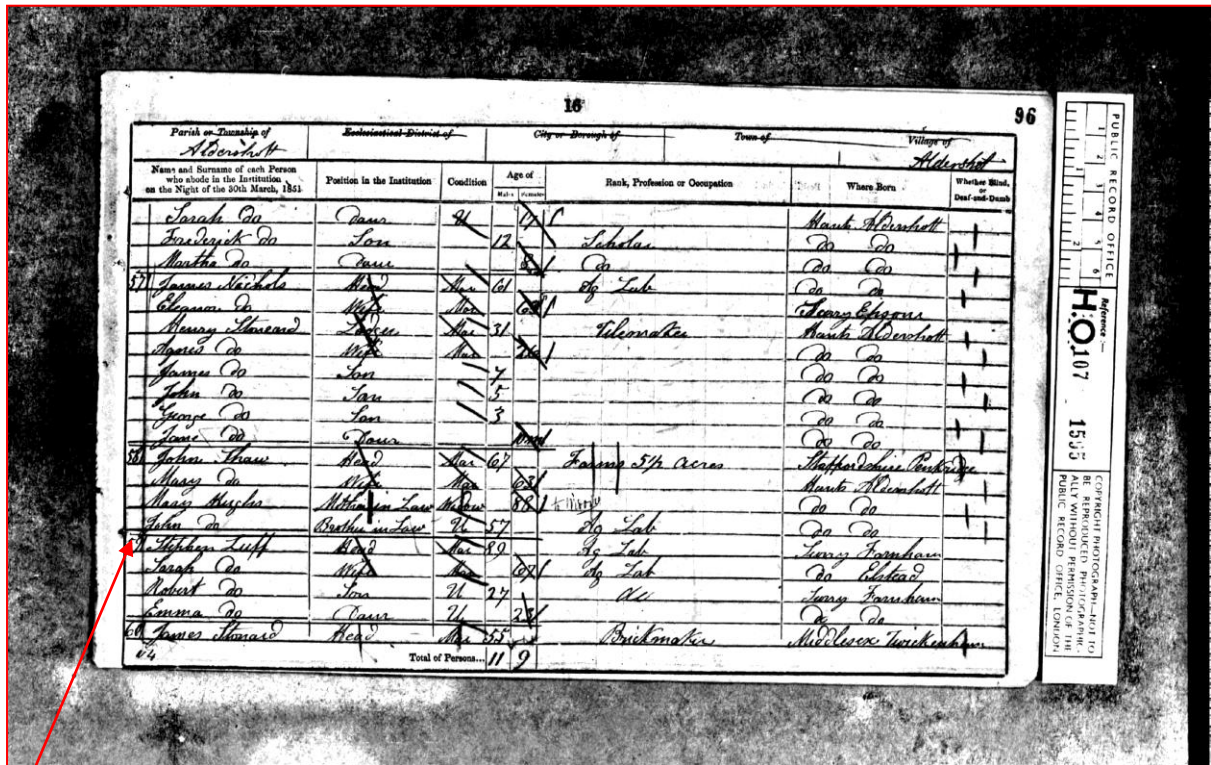 16
96
Parish or Township of
Aldershott
Ecclesiastical District of
City or Borough of
Town of
Village of
Aldershot
Name and Surname of each Person who abode in the Institution on the Night of the 30th March, 1851
Position in the Institution
Condition
Age of
Males
Females
Rank, Profession or Occupation
Where Born
Whether Blind, or Deaf-and-Dumb
Sarah Do Daur U 17 Hants Aldershott
Frederick Do Son 12 Scholar Do Do
Martha Do Daur Do Do Do
57 James Nichols Head Mar 61 Ag Lab Do Do
Eleanor Do Wife Mar 63 Surry Epsom
Henry Stonard Lodger Mar 31 Tilemaker Hants Aldershott
Agnes Do Wife Mar Do Do
James Do Son 7 Do Do
John Do Son 5 Do Do
George Do Son 3 Do Do
Jane Do Daur Do Do
58 John Shaw Head Mar 67 Farms 5½ Acres Staffordshire Penkridge
Mary Do Wife Mar 63 Hants Aldershott
Mary Hughes Mother in Law Widow 88 Do Do
John Do Brother in Law U 57 Ag Lab Do Do
Stephen Luff Head Mar 89 Ag Lab Surry Farnham
Sarah Do Wife Mar 67 Ag Lab Do Elstead
Robert Do Son U 27 Do Surry Farnham
Emma Do Daur U 23 Do Do
60 James Stonard Head Mar 55 Brickmaker Middlesex Twickenham
Total of Persons... 11 9
PUBLIC RECORD OFFICE
1 2 3 4 5 6
1 2
Reference :—
H.O. 107
1595
COPYRIGHT PHOTOGRAPH—NOT TO
BE REPRODUCED PHOTOGRAPHIC-
ALLY WITHOUT PERMISSION OF THE
PUBLIC RECORD OFFICE, LONDON